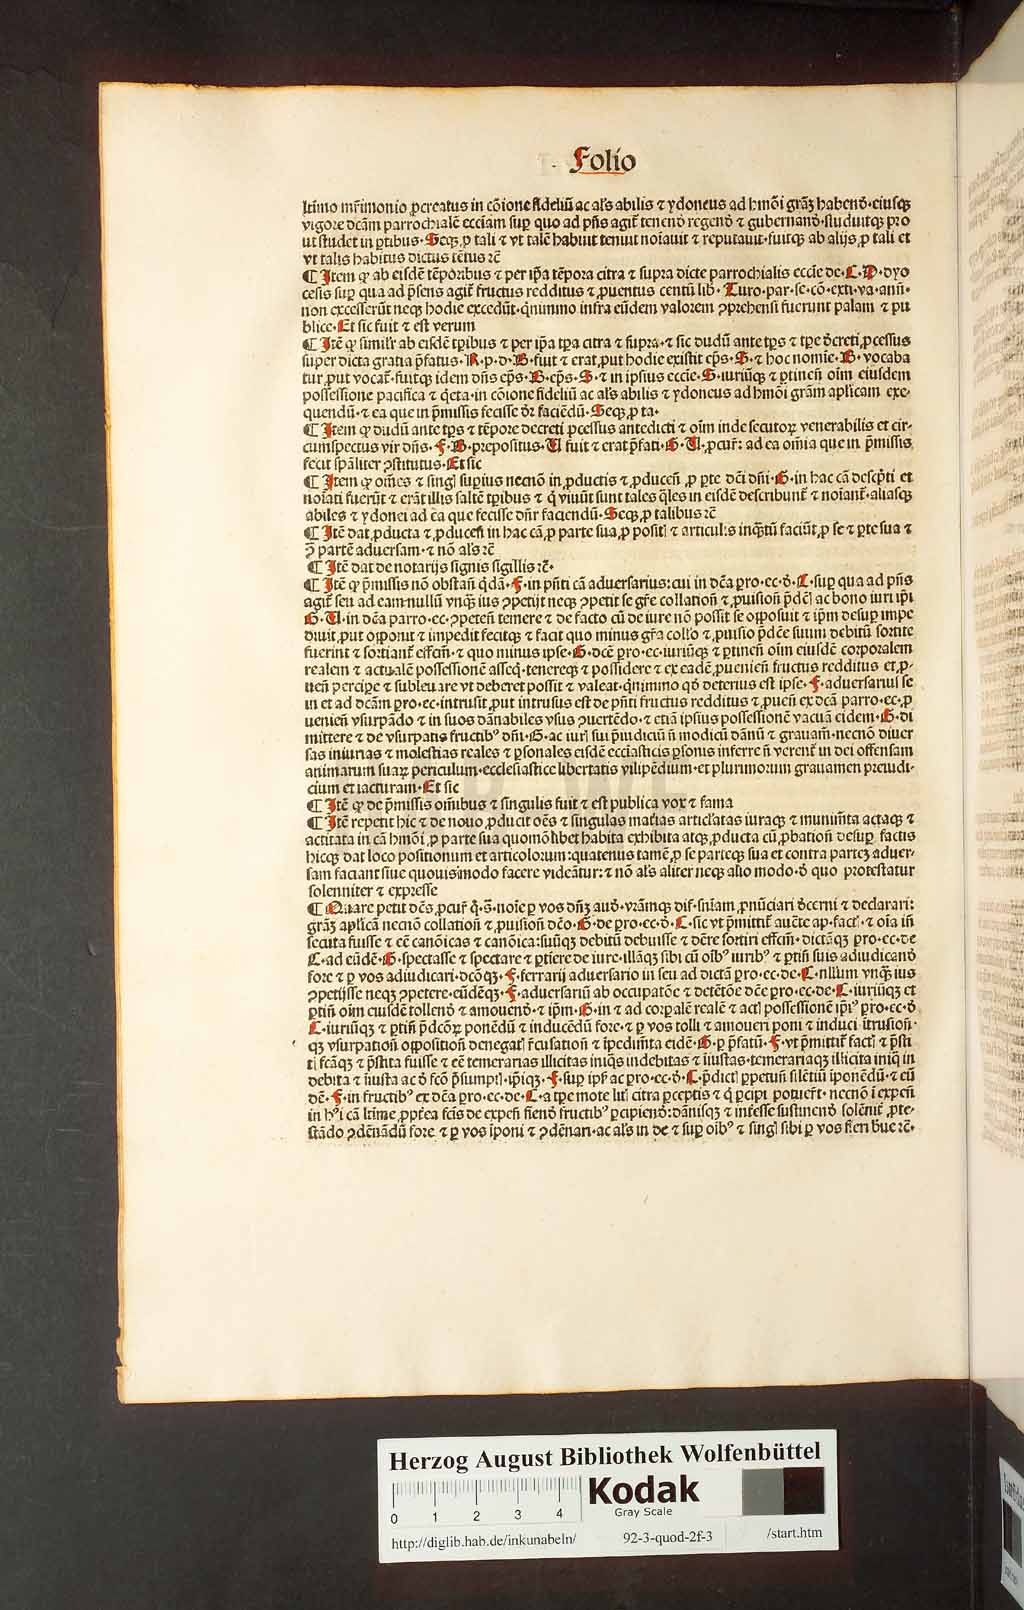 Folio
ltimo mr̄imonio ꝓcreatus in cōione fideliū ac al's abilis ⁊ ydoneus ad hmōi grāꝫ habenꝺ̄·eiusqꝫ
vigore dcām parrochialē ecciam suꝑ quo ad pn̄s agit̄ tenenꝺ̄ regenꝺ̄ ⁊ gubernanꝺ̄·studuitqꝫ pro
ut studet in ꝑtibus·Seqꝫ ꝓ tali ⁊ vt talē habuit tenuit noīauit ⁊ reputauit·fuitqꝫ ab alijs ꝓ tali et
vt talis habitus dictus tētus ⁊c̄
¶ Item ꝙ ab eisdē tēporibus ⁊ per ip̄a tēpora citra ⁊ supra dicte parrochialis eccīe de·L·D·dyo
cesis suꝑ qua ad p̄sens agit̄ fructus redditus ⁊ ꝓuentus centū lib·Turo·par·se·cō·exti·va·anū·
non excesserūt neqꝫ hodie excedūt·qn̄immo infra eūdem valorem ꝯprehensi fuerunt palam ⁊ pu
blice·Et sic fuit ⁊ est verum
¶ Itē ꝙ simil'r ab eisdē tꝑibus ⁊ per ip̄a tꝑa citra ⁊ supra·⁊ sic dudū ante tꝑs ⁊ tꝑe ꝺ̄creti ꝓcessus
super dicta gratia p̄fatus·R·p·d·B·fuit ⁊ erat ꝓut hodie existit ep̄s·S·⁊ hoc nomīe·B·vocaba
tur ꝓut vocat̄·fuitqꝫ idem dn̄s ep̄s·B·ep̄s·S·⁊ in ipsius eccīe·S·iuriūqꝫ ⁊ ꝑtinen̄ oīm eiusdem
possessione pacifica ⁊ qeta·in cōione fideliū ac al's abilis ⁊ ydoneus ad hmōi grām aplicam exe·
quendū·⁊ ea que in p̄missis fecisse ꝺ̄r faciēdū·Seqꝫ ꝓ ta·
¶ Item ꝙ dudū ante tꝑs ⁊ tēpore decreti ꝓcessus antedicti ⁊ oīm inde secutoꝝ venerabilis et cir·
cumspectus vir dn̄s·F·B·prepositus·U fuit ⁊ erat p̄fati·G·U ꝓcur̄: ad ea om̄ia que in p̄missis
fecit spāliter ꝯstitutus·Et sic
¶ Item ꝙ oīnes ⁊ singl' suꝑius necnō in ꝓductis ⁊ ꝓducen̄ ꝓ ꝑte dc̄i dn̄i·G·in hac cā descp̄ti et
noīati fuerūt ⁊ erāt illis saltē tꝑibus ⁊ q̄ viuūt sunt tales q̄les in eisdē describunt̄ ⁊ noīant̄·aliasqꝫ
abiles ⁊ ydonei ad ea que fecisse dn̄r faciendū·Seqꝫ ꝓ talibus ⁊c̄
¶ Itē dat ꝓducta ⁊ ꝓducen̄ in hac cā ꝓ parte sua ꝓ posit' ⁊ articul:s inq̄tū faciūt ꝓ se ⁊ ꝑte sua ⁊
ꝯ̄ partē aduersam·⁊ nō al's ⁊c̄
¶ Itē dat de notarijs signis sigillis ⁊c̄·
¶ Itē ꝙ p̄missis nō obstan̄ q̄dā·F·in pn̄ti cā aduersarius: cui in dc̄a ꝑro·ec·ꝺ̄·L·suꝑ qua ad pn̄s
agit̄ seu ad eam nullū vnqꝫ ius ꝯpetijt neqꝫ ꝯpetit se gr̄e collation̄ ⁊ ꝓuision̄ p̄dc̄' ac bono iuri ip̄i
G·U·in dc̄a parro·ec·ꝯpeten̄ temere ⁊ de facto cū de iure nō possit se opposuit ⁊ ip̄m desuꝑ impe
diuit ꝓut opponit ⁊ impedit fecitqꝫ ⁊ facit quo minus gr̄a coll'o ⁊ ꝓuisio p̄dc̄e suum debitū sortite
fuerint ⁊ sortiant̄ effc̄m·⁊ quo minus ipse·G·dc̄e ꝑro·ec·iuriūqꝫ ⁊ ꝑtinen̄ oīm eiusdē corporalem
realem ⁊ actualē possessionē asseq̄·tenereqꝫ ⁊ possidere ⁊ ex eadē ꝓuenien̄ fructus redditus et ꝓ·
uen̄ perciꝑe ⁊ subleuare vt deberet possit ⁊ valeat·qn̄immo qꝺ̄ deterius est ipse·F·aduersarius se
in et ad dcām ꝑro·ec·intrusit ꝓut intrusus est de pn̄ti fructus redditus ⁊ ꝓuen̄ ex dc̄a parro·ec·ꝓ
uenien̄ vsurpādo ⁊ in suos dānabiles vsus ꝯuertēdo·⁊ etiā ipsius possessionē vacuā eidem·G·di
mittere ⁊ de vsurpatis fructibꝰ dn̄i·G·ac iur' sui p̄iudiciū n̄ modicū dānū ⁊ grauam̄·necnō diuer
sas iniurias ⁊ molestias reales ⁊ ꝑsonales eisdē ecciasticis ꝑsonis inferre n̄ verent̄ in dei offensam
animarum suaꝝ periculum·ecclesiastice libertatis vilipēdium·et plurimorum grauamen preiudi·
cium et iacturam·Et sic
¶ Itē ꝙ de p̄missis om̄ibus ⁊ singulis fuit ⁊ est publica vox ⁊ fama
¶ Itē repetit hic ⁊ de nouo ꝓducit oēs ⁊ singulas matias articl'atas iuraqꝫ ⁊ munimēta actaqꝫ ⁊
actitata in cā hmōi ꝓ parte sua quomōlibet habita exhibita atqꝫ ꝓducta cū ꝓbation̄ desuꝑ factis
hicqꝫ dat loco positionum et articolorum: quatenus tamē ꝓ se parteqꝫ sua et contra parteꝫ aduer·
sam faciant siue quouismodo facere videātur: ⁊ nō al's aliter neqꝫ alio modo·ꝺ̄ quo protestatur
solenniter ⁊ expresse
¶ Quare petit dc̄s ꝓcur̄ q̄·s̄·noīe ꝑ vos dn̄ꝫ auꝺ̄·vrāmqꝫ dif·sn̄iam ꝓnūciari ꝺ̄cerni ⁊ declarari:
grāꝫ aplicā necnō collation̄ ⁊ ꝓuision̄ dc̄o·G·de ꝑro·ec·ꝺ̄·L·sic vt p̄mittit̄ auc̄te ap·fact' ⁊ oīa in̄
secuta fuisse ⁊ eē canōicas ⁊ canōica: suūqꝫ debitū debuisse ⁊ dēre sortiri effc̄m·dictāqꝫ ꝑro·ec·de
L·ad eūdē·G·spectasse ⁊ spectare ⁊ ꝑtiere de iure·illāqꝫ sibi cū oībꝰ iuribꝰ ⁊ ꝑtin̄ suis adiudicanꝺ̄
fore ⁊ ꝑ vos adiudicari·dcōqꝫ·F·ferrarij aduersario in seu ad dictā ꝑro·ec·de·L·nll'um vnqꝫ ius
ꝯpetijsse neqꝫ ꝯpetere·eūdēqꝫ·F·aduersariū ab occupatōe ⁊ detētōe dc̄e ꝑro·ec·de·L·iuriūqꝫ et
ꝑtin̄ oīm eiusdē tollenꝺ̄ ⁊ amouenꝺ̄·⁊ ip̄m·G·in ⁊ ad corꝑalē realē ⁊ act' possessionē ip̄iꝰ ꝑro·ec·ꝺ̄
L·iuriūqꝫ ⁊ ꝑtin̄ p̄dcōꝝ ponēdū ⁊ inducēdū fore·⁊ ꝑ vos tolli ⁊ amoueri poni ⁊ induci itrusion̄·
qꝫ vsurpation̄ opposition̄ denegat' r̄cusation̄ ⁊ īpedimta eidē·G·ꝑ p̄fatū·F·vt p̄mittit̄ fact' ⁊ p̄sti
t' fcāqꝫ ⁊ p̄stita fuisse ⁊ eē temerarias illicitas iniq̄s indebitas ⁊ iiustas·temerariaqꝫ illicita iniq̄ in
debita ⁊ iiusta ac ꝺ̄ fcō p̄sumpt' ip̄iqꝫ·F·suꝑ ipſ' ac ꝑro·ec·ꝺ̄·L·p̄dict' ꝑpetuū silētiū īponēdū·⁊ eū
dē·F·in fructibꝰ ex dc̄a ꝑro·ec·de·L·a tꝑe mote lit' citra ꝑceptis ⁊ q̄ ꝑcipi potuer̄t·necnō ī expen̄
in hꝰi cā ltīme ꝓpt̄ea fc̄is de expen̄ fienꝺ̄ fructibꝰ ꝑcipienꝺ̄: dānisqꝫ ⁊ īnt̄esse sustinenꝺ̄ solēnit̄ ꝓte·
stādo ꝯdēnādū fore ⁊ ꝑ vos īponi ⁊ ꝯdēnari·ac al's in de ⁊ suꝑ oībꝰ ⁊ singl' sibi ꝑ vos fieri b̄ue ⁊c̄·
Herzog August Bibliothek Wolfenbüttel
0 1 2 3 4
Kodak
Gray Scale
http://diglib.hab.de/inkunabeln/ 92-3-quod-2f-3 /start.htm